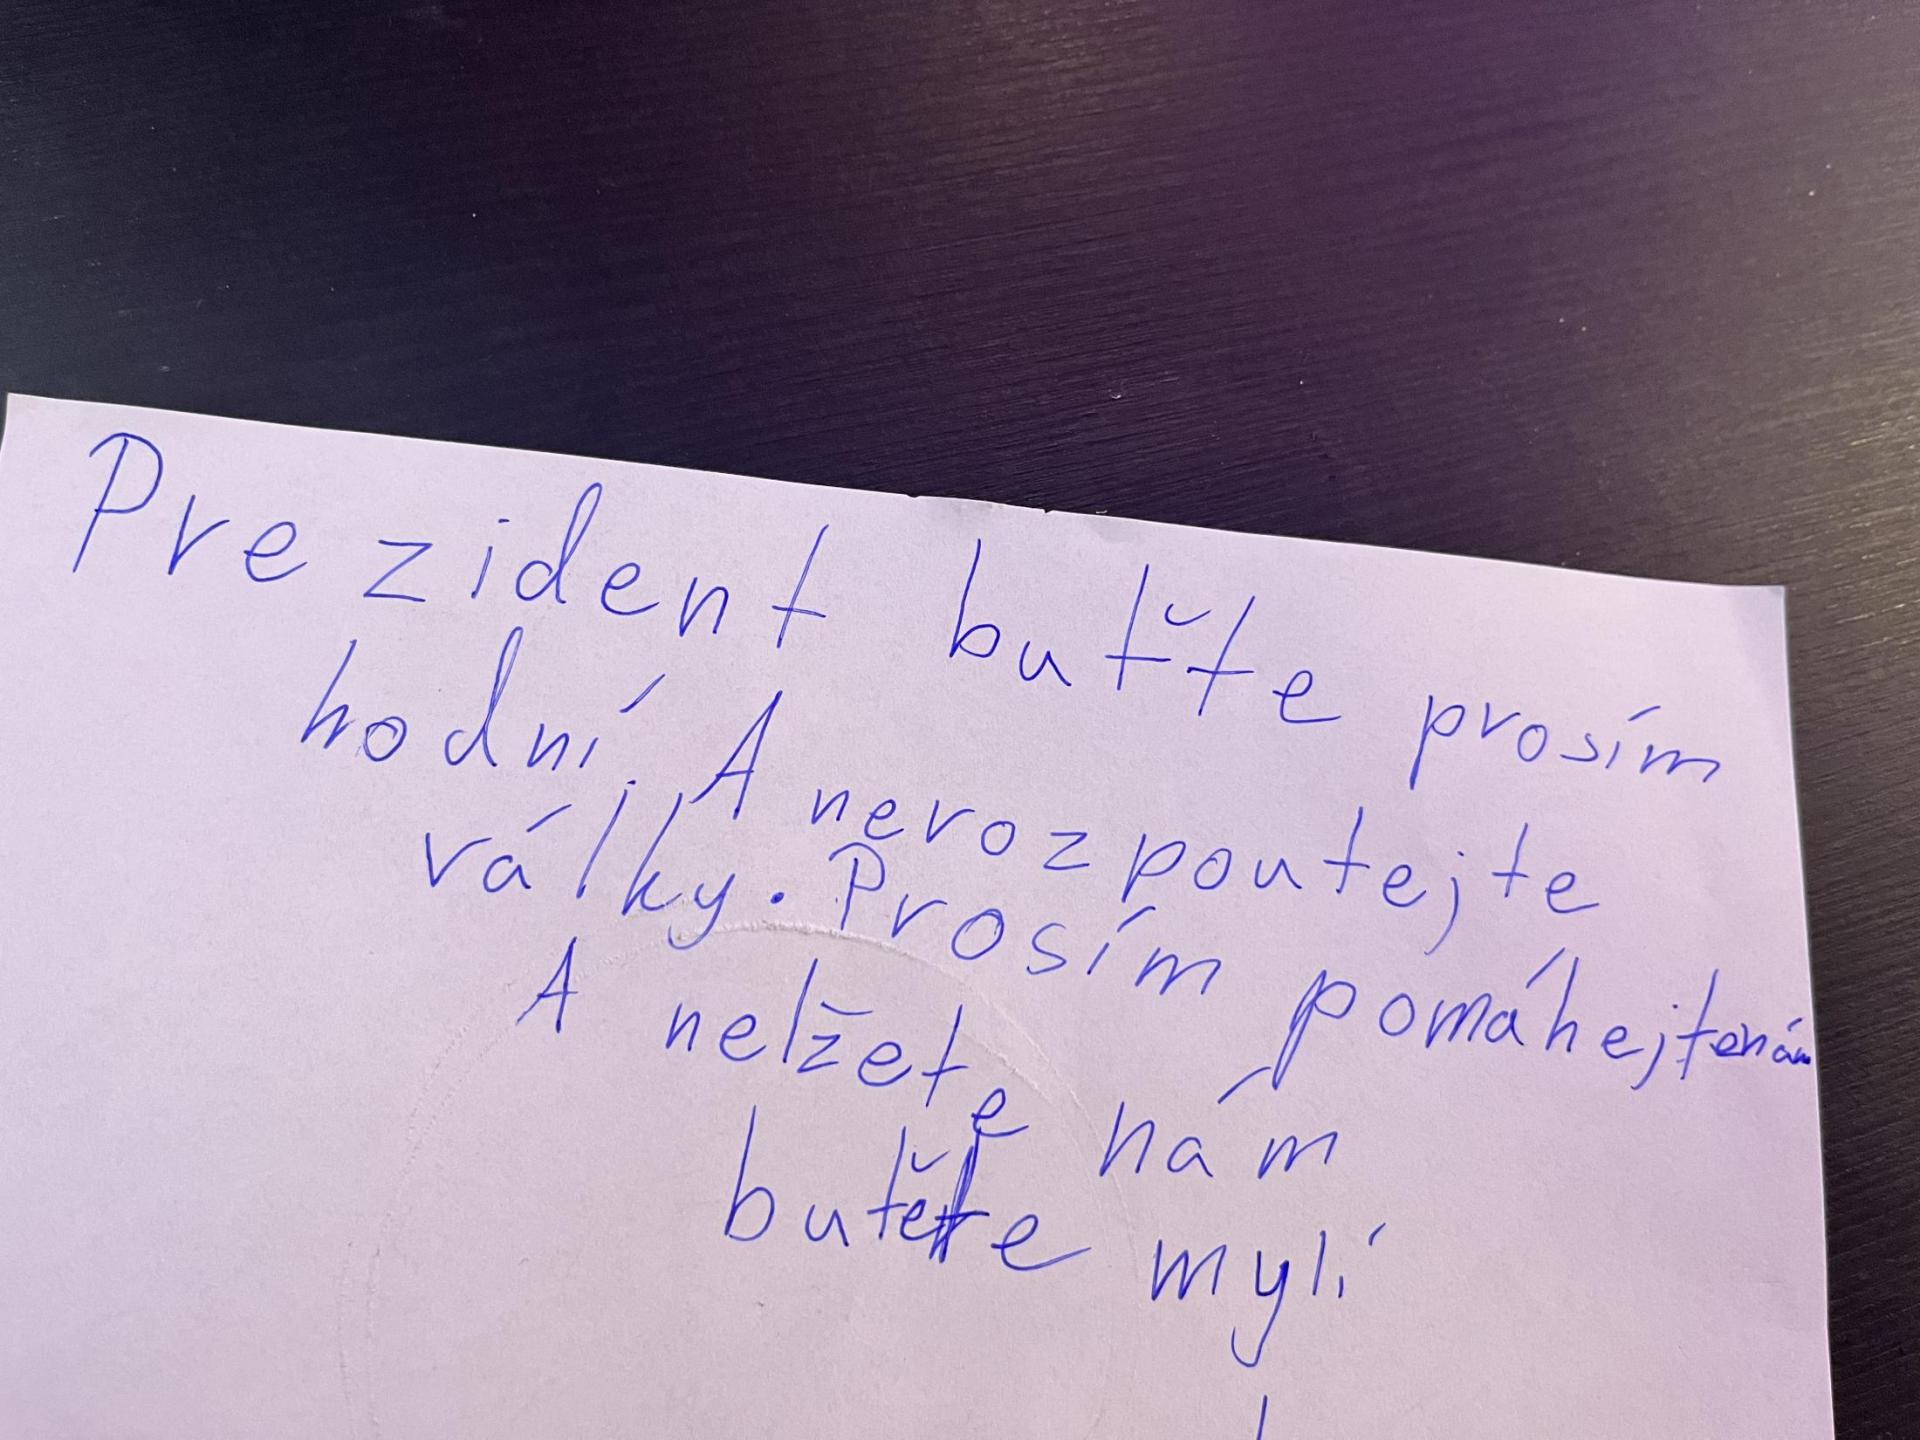 Prezident butťe prosím
hodní. A nerozpoutejte
války. Prosím pomáhejtenám
A nelžete nám
buťe mylí